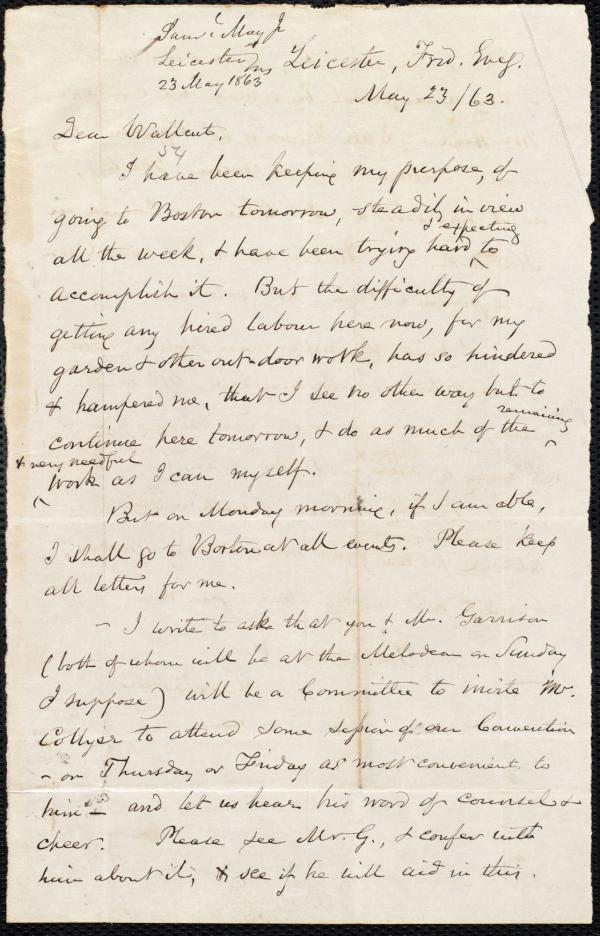 Saml May Jr
Leicester, Ms
23 May 1863
Leicester, Frid. Eveg.
May 23/63.
Dear Wallcut,
54
I have been keeping my purpose, of
going to Boston tomorrow, steadily in view
& expecting
all the week, & have been trying hard to
accomplish it. But the difficulty of
getting any hired labour here now, for my
garden & other out-door work, has so hindered
& hampered me, that I see no other way but to
remaining
continue here tomorrow, & do as much of the
& very needful
work as I can myself.
But on Monday morning, if I am able,
I shall go to Boston at all events. Please keep
all letters for me.
- I write to ask that you & Mr. Garrison
(both of whom will be at the Melodeon on Sunday
I suppose) will be a Committee to invite Mr.
Collyer to attend some session of our Convention
- on Thursday or Friday as most convenient to
him - and let us hear his word of counsel &
cheer. Please see Mr. G., & confer with
him about it, & see if he will aid in this.